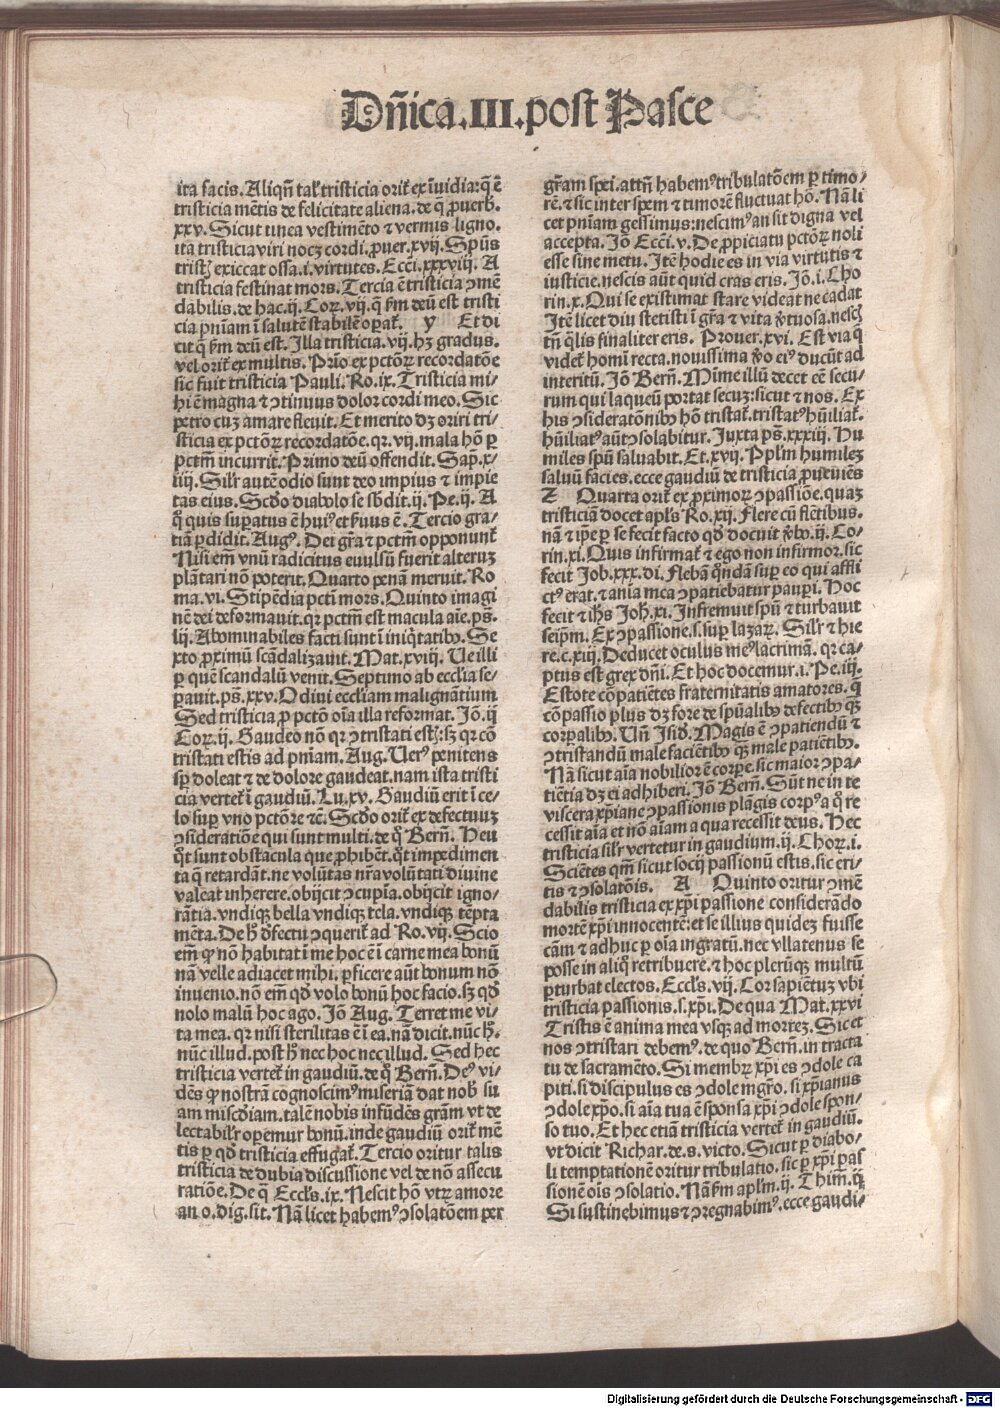 Dñica.III.post Pasce
ita facis. Aliqñ tal' tristicia orit̃ ex ĩuidia: q̃ ẽ
tristicia mẽtis de felicitate aliena. de q̃ ꝓuerb̃.
xxv. Sicut tinea vestimẽto ⁊ vermis ligno.
ita tristicia viri nocꝫ cordi. ꝓuer. xvij. Spũs
tristꝭ exiccat ossa .i. virtutes. Ecci. xxxviij. A
tristicia festinat mors. Tercia ẽ tristicia ꝯmẽ
dabilis. de hac .ij. Coꝝ. vij. q̃ ẜm deũ est tristi
cia pniam ĩ salutẽ stabilẽ opat̃. y Et di
cit q̃ ẜm deũ est. Illa tristicia .vij. hꝫ gradus.
vel orit̃ ex multis. Prĩo ex pctõꝝ recordatõe
sic fuit tristicia Pauli. Ro. ix. Tristicia mi⸗
hi ẽ magna ⁊ ꝯtinuus dolor cordi meo. Sic
petro cuꝫ amare fleuit. Et merito dꝫ oriri tri⸗
sticia ex pctõꝝ recordatõe. qꝛ. vij. mala hõ ꝑ
pctm̃ incurrit̃. Primo deũ offendit. Sap̃. x⸗
iiij. Silr̃ autẽ odio sunt deo impius ⁊ impie
tas eius. Scd̃o diabolo se sb̃dit. ij. Pe. ij. A
q̊ quis suꝑatus ẽ huiꝰ et ẜuus ẽ. Tercio gra⸗
tiã ꝑdidit. Augꝰ. Dei gr̃a ⁊ pctm̃ opponunt̃
Nisi em̃ vnũ radicitus euulsũ fuerit alteruꝫ
plãtari nõ poterit. Quarto penã meruit. Ro
ma. vi. Stipẽdia pcti mors. Quinto imagi
nẽ dei deformauit. qꝛ pctm̃ est macula aĩe. ps̃.
lij. Abominabiles facti sunt ĩ iniq̇tatibꝰ. Se
xto ꝓximũ scãdalizauit. Mat. xviij. Ue illi
ꝑ quẽ scandalũ venit. Septimo ab ecclia se⸗
parauit. ps̃. xxv. Odiui eccliam malignãtium
Sed tristicia ꝓ pctõ oĩa illa reformat. Jõ. ij
Coꝝ. ij. Gaudeo nõ qꝛ ꝯtristati estꝭ: sꝫ qꝛ cõ
tristati estis ad pniam. Aug. Uerꝰ penitens
sp̃ doleat ⁊ de dolore gaudeat. nam ista tristi
cia vertet̃ ĩ gaudiũ. Lu. xv. Gaudiũ erit ĩ ce⸗
lo suꝑ vno pctõre ⁊c̃. Scd̃o orit̃ ex defectuuꝫ
ꝯsideratiõe qui sunt multi. de q̊ Berñ. Heu
q̊t sunt obstacula que ꝓhibẽt. q̊t impedimen
ta q̃ retardãt. ne volũtas nr̃a volũtati diuine
valeat inherere. obijcit̃ ꝯcupĩa. obijcit̃ igno⸗
rãtia. vndiqꝫ bella vndiqꝫ tela. vndiqꝫ tẽpta
mẽta. De h̃ defectu ꝯquerit̃ ad Ro. vij. Scio
em̃ ꝙ nõ habitat ĩ me hoc ẽ ĩ carne mea bonũ
nã velle adiacet mihi. ꝑficere aũt bonum nõ
inuenio. nõ em̃ qd̃ volo bonũ hoc facio. sꝫ qd̃
nolo malũ hoc ago. Jõ Aug. Terret me vi⸗
ta mea. qꝛ nisi sterilitas ẽ ĩ ea. nã dicit. nũc h̊.
nũc illud. post h̊ nec hoc nec illud. Sed hec
tristicia vertet̃ in gaudiũ. de q̊ Berñ. Deꝰ vi⸗
dẽs ꝙ nostrã cognoscimꝰ miseriã dat nob̃ su
am misc̃diam. talẽ nobis infũdẽs gr̃am vt de
lectabilr̃ operemur bonũ. inde gaudiũ orit̃ mẽ
tis ꝑ qd̃ tristicia effugat̃. Tercio oritur talis
tristicia de dubia discussione vel de nõ assecu
ratiõe. De q̃ Eccl's. ix. Nescit hõ vtꝝ amore
an o. dig. sit. Nã licet habemꝰ ꝯsolatõem per
gr̃am spei. attñ habemꝰ tribulatõem ꝑ timo⸗
rẽ. ⁊ sic inter spem ⁊ timorẽ fluctuat hõ. Nã li
cet pniam gessimus: nescimꝰ an sit digna vel
accepta. Jõ Ecci. v. De ꝓpiciatu pctõꝝ noli
esse sine metu. Itẽ hodie es in via virtutis ⁊
iusticie. nescis aũt quid cras eris. Jõ. i. Cho
rin. x. Qui se existimat stare videat ne cadat
Itẽ licet diu stetisti ĩ gr̃a ⁊ vita ṽtuosa. nescꝭ
tñ q̃lis finaliter eris. Prouer. xvi. Est via q̃
videt̃ homĩ recta. nouissima ṽo eiꝰ ducũt ad
interitũ. Jõ Berñ. Mĩme illũ decet eẽ secu⸗
rum qui laqueũ portat secuꝫ: sicut ⁊ nos. Ex
his ꝯsideratõibꝰ hõ tristat̃. tristatꝰ hũiliat̃.
hũiliatꝰ aũt ꝯsolabitur. Juxta ps̃. xxxiij. Hu
miles spũ saluabit. Et. xvij. Ppl'm humileꝫ
saluũ facies. ecce gaudiũ de tristicia ꝓueniẽs
Z Quarta orit̃ ex ꝓximoꝝ ꝯpassiõe. quaꝫ
tristiciã docet apl's Ro. xij. Flere cũ flẽtibus.
nã ⁊ ip̃e ꝑ se fecit facto qd̃ docuit ṽbo. ij. Co⸗
rin. xi. Quis infirmat̃ ⁊ ego non infirmor. sic
fecit Job. xxx. di. Flebã q̊ndã suꝑ eo qui affli
ctꝰ erat. ⁊ aĩa mea ꝯpatiebatur pauꝑi. Hoc
fecit ⁊ ih̃s Joh̃. xi. Infremuit spũ ⁊ turbauit
seip̃m. Ex ꝯpassione .s. suꝑ lazaꝝ. Silr̃ ⁊ hie
re. c. xiij. Deducet oculus meꝰ lacrimã. qꝛ ca⸗
ptus est grex dñi. Et hoc docemur .i. Pe. iij.
Estote cõpatiẽtes fraternitatis amatores. q̃
cõpassio plus dꝫ fore de spũalibꝰ defectibꝰ qꝫ
corꝑalibꝰ. Uñ Isid̃. Magis ẽ ꝯpatiendũ ⁊
ꝯtristandũ male faciẽtibꝰ qꝫ male patiẽtibꝰ.
Nã sicut aĩa nobilior ẽ corꝑe. sic maior ꝯpa⸗
tiẽtia dꝫ ei adhiberi. Jõ Berñ. Sũt ne in te
viscera xp̃iane ꝯpassionis plãgis corpꝰ a q̊ re
cessit aĩa et nõ aĩam a qua recessit deus. Hec
tristicia silr̃ vertetur in gaudium. ij. Choꝝ. i.
Sciẽtes qm̃ sicut socij passionũ estis. sic eri⸗
tis ⁊ ꝯsolatõis. A Quinto oritur ꝯmẽ
dabilis tristicia ex xp̃i passione considerãdo
mortẽ xp̃i innocentẽ: et se illius quideꝫ fuisse
cãm ⁊ adhuc ꝑ oĩa ingratũ. nec vllatenus se
posse in aliq̊ retribuere. ⁊ hoc plerũqꝫ multũ
ꝑturbat electos. Eccl's. vij. Cor sapiẽtuꝫ vbi
tristicia passionis .s. xp̃i. De qua Mat. xxvi
Tristis ẽ anima mea vsqꝫ ad morteꝫ. Sic et
nos ꝯtristari debemꝰ. de quo Berñ. in tracta
tu de sacramẽto. Si membꝝ xp̃i es ꝯdole ca
piti. si discipulus es ꝯdole mgr̃o. si xp̃ianus
ꝯdole xp̃o. si aĩa tua ẽ sponsa xp̃i ꝯdole spon⸗
so tuo. Et hec etiã tristicia vertet̃ in gaudiũ.
vt dicit Richar. de. s. victo. Sicut ꝑ diabo⸗
li temptationẽ oritur tribulatio. sic ꝑ xp̃i pas
sionẽ oĩs ꝯsolatio. Nã ẜm apl'm. ij. Thim̃. ij.
Si sustinebimus ⁊ ꝯregnabimꝰ. ecce gaudi⸗
Digitalisierung gefördert durch die Deutsche Forschungsgemeinschaft - DFG